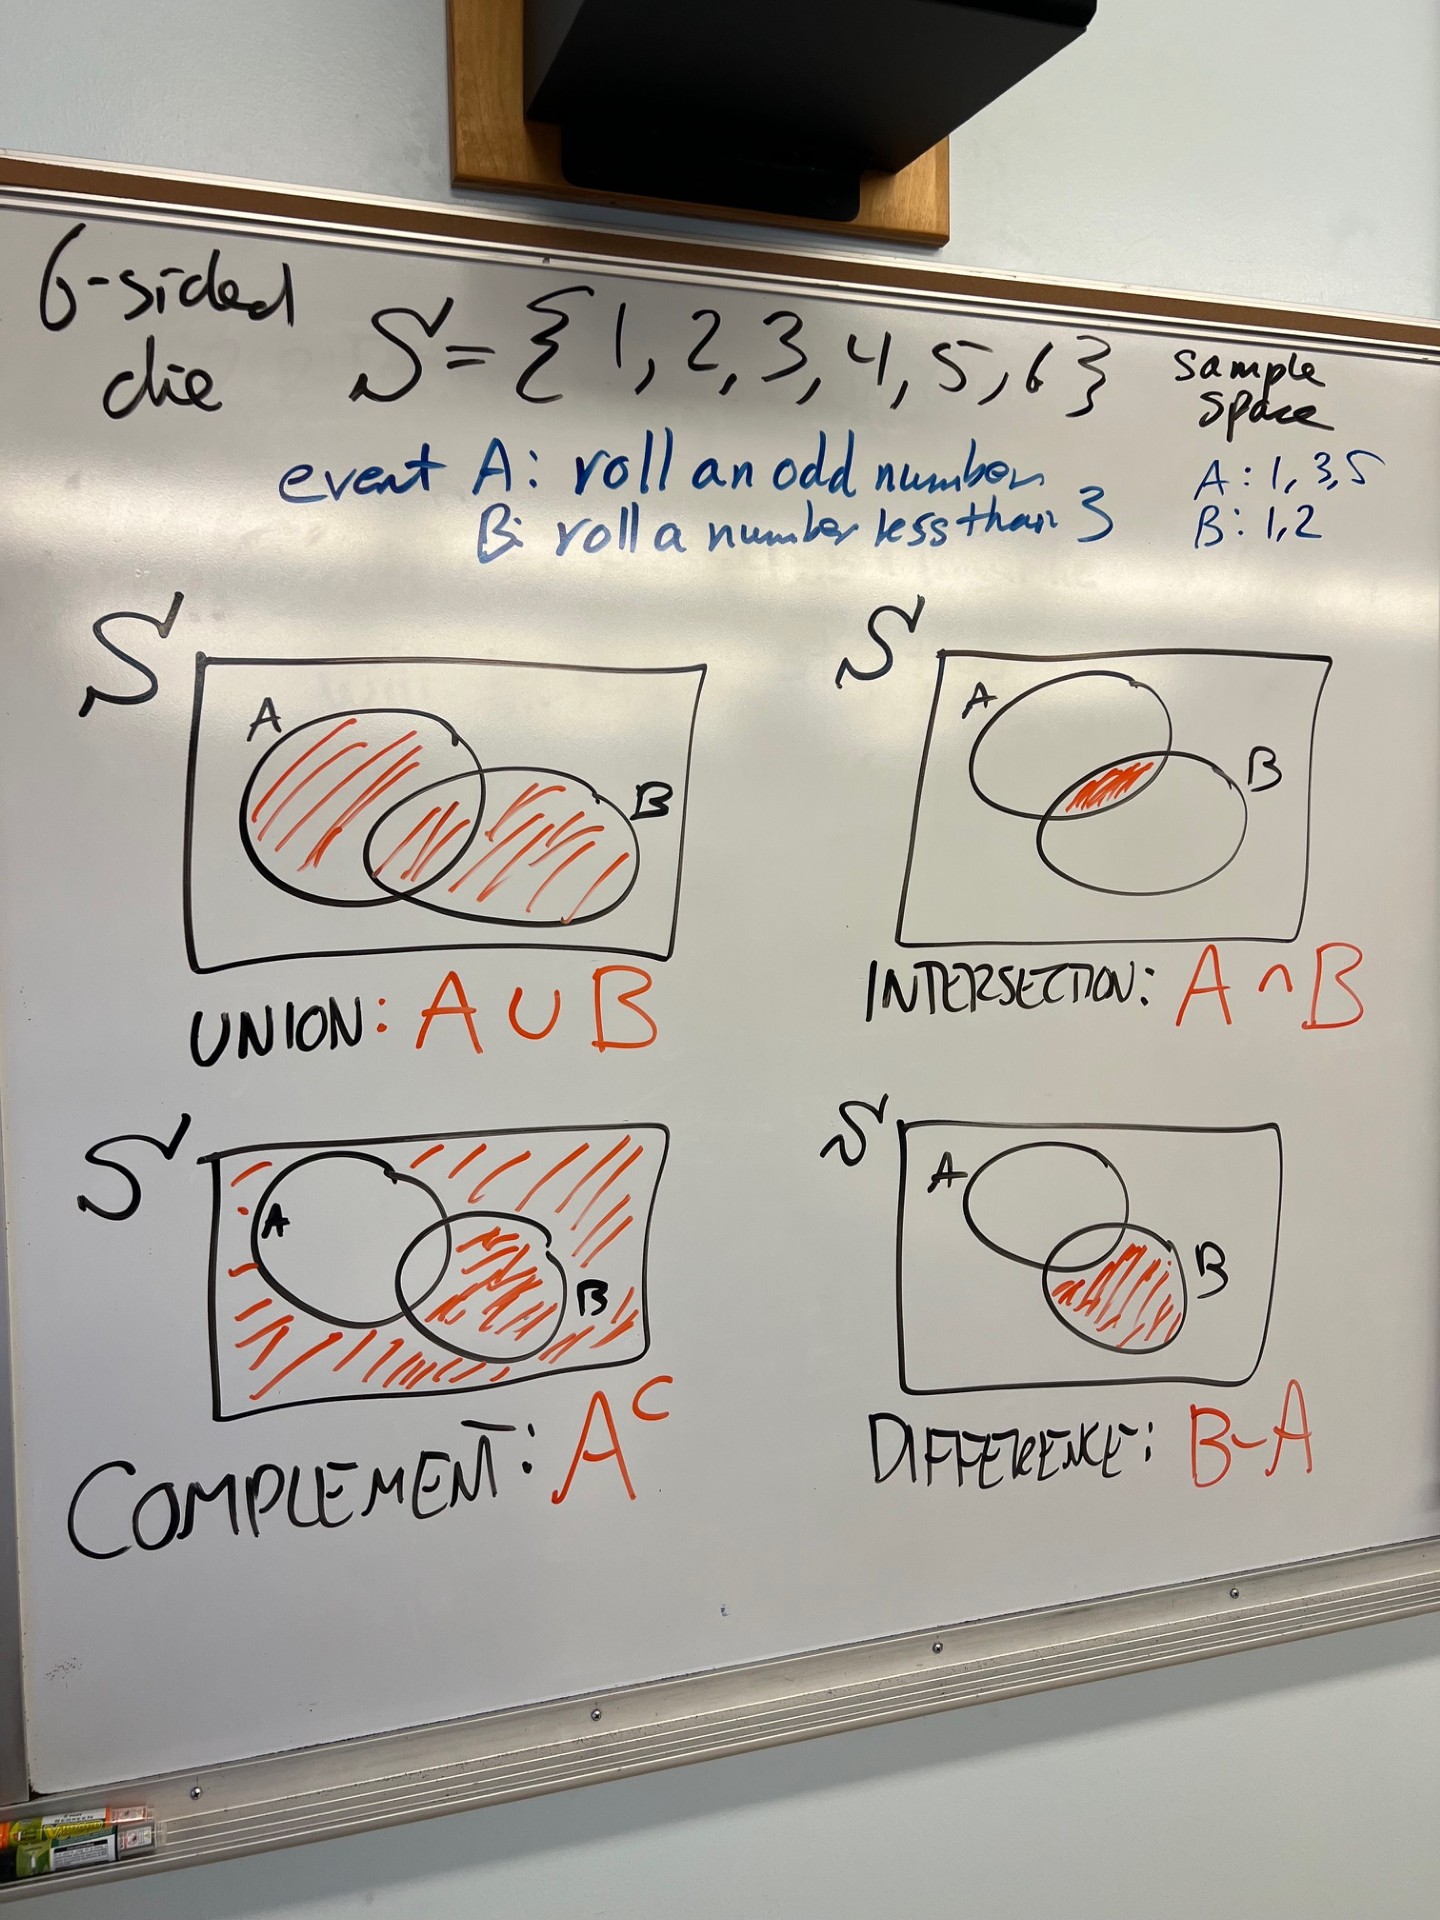 6-sided
die
S = { 1, 2, 3, 4, 5, 6 }
sample
space
event A: roll an odd number
B: roll a number less than 3
A: 1, 3, 5
B: 1, 2
S
A
B
UNION: A ∪ B
S
A
B
INTERSECTION: A ∩ B
S
A
B
COMPLEMENT: Aᶜ
S
A
B
DIFFERENCE: B-A